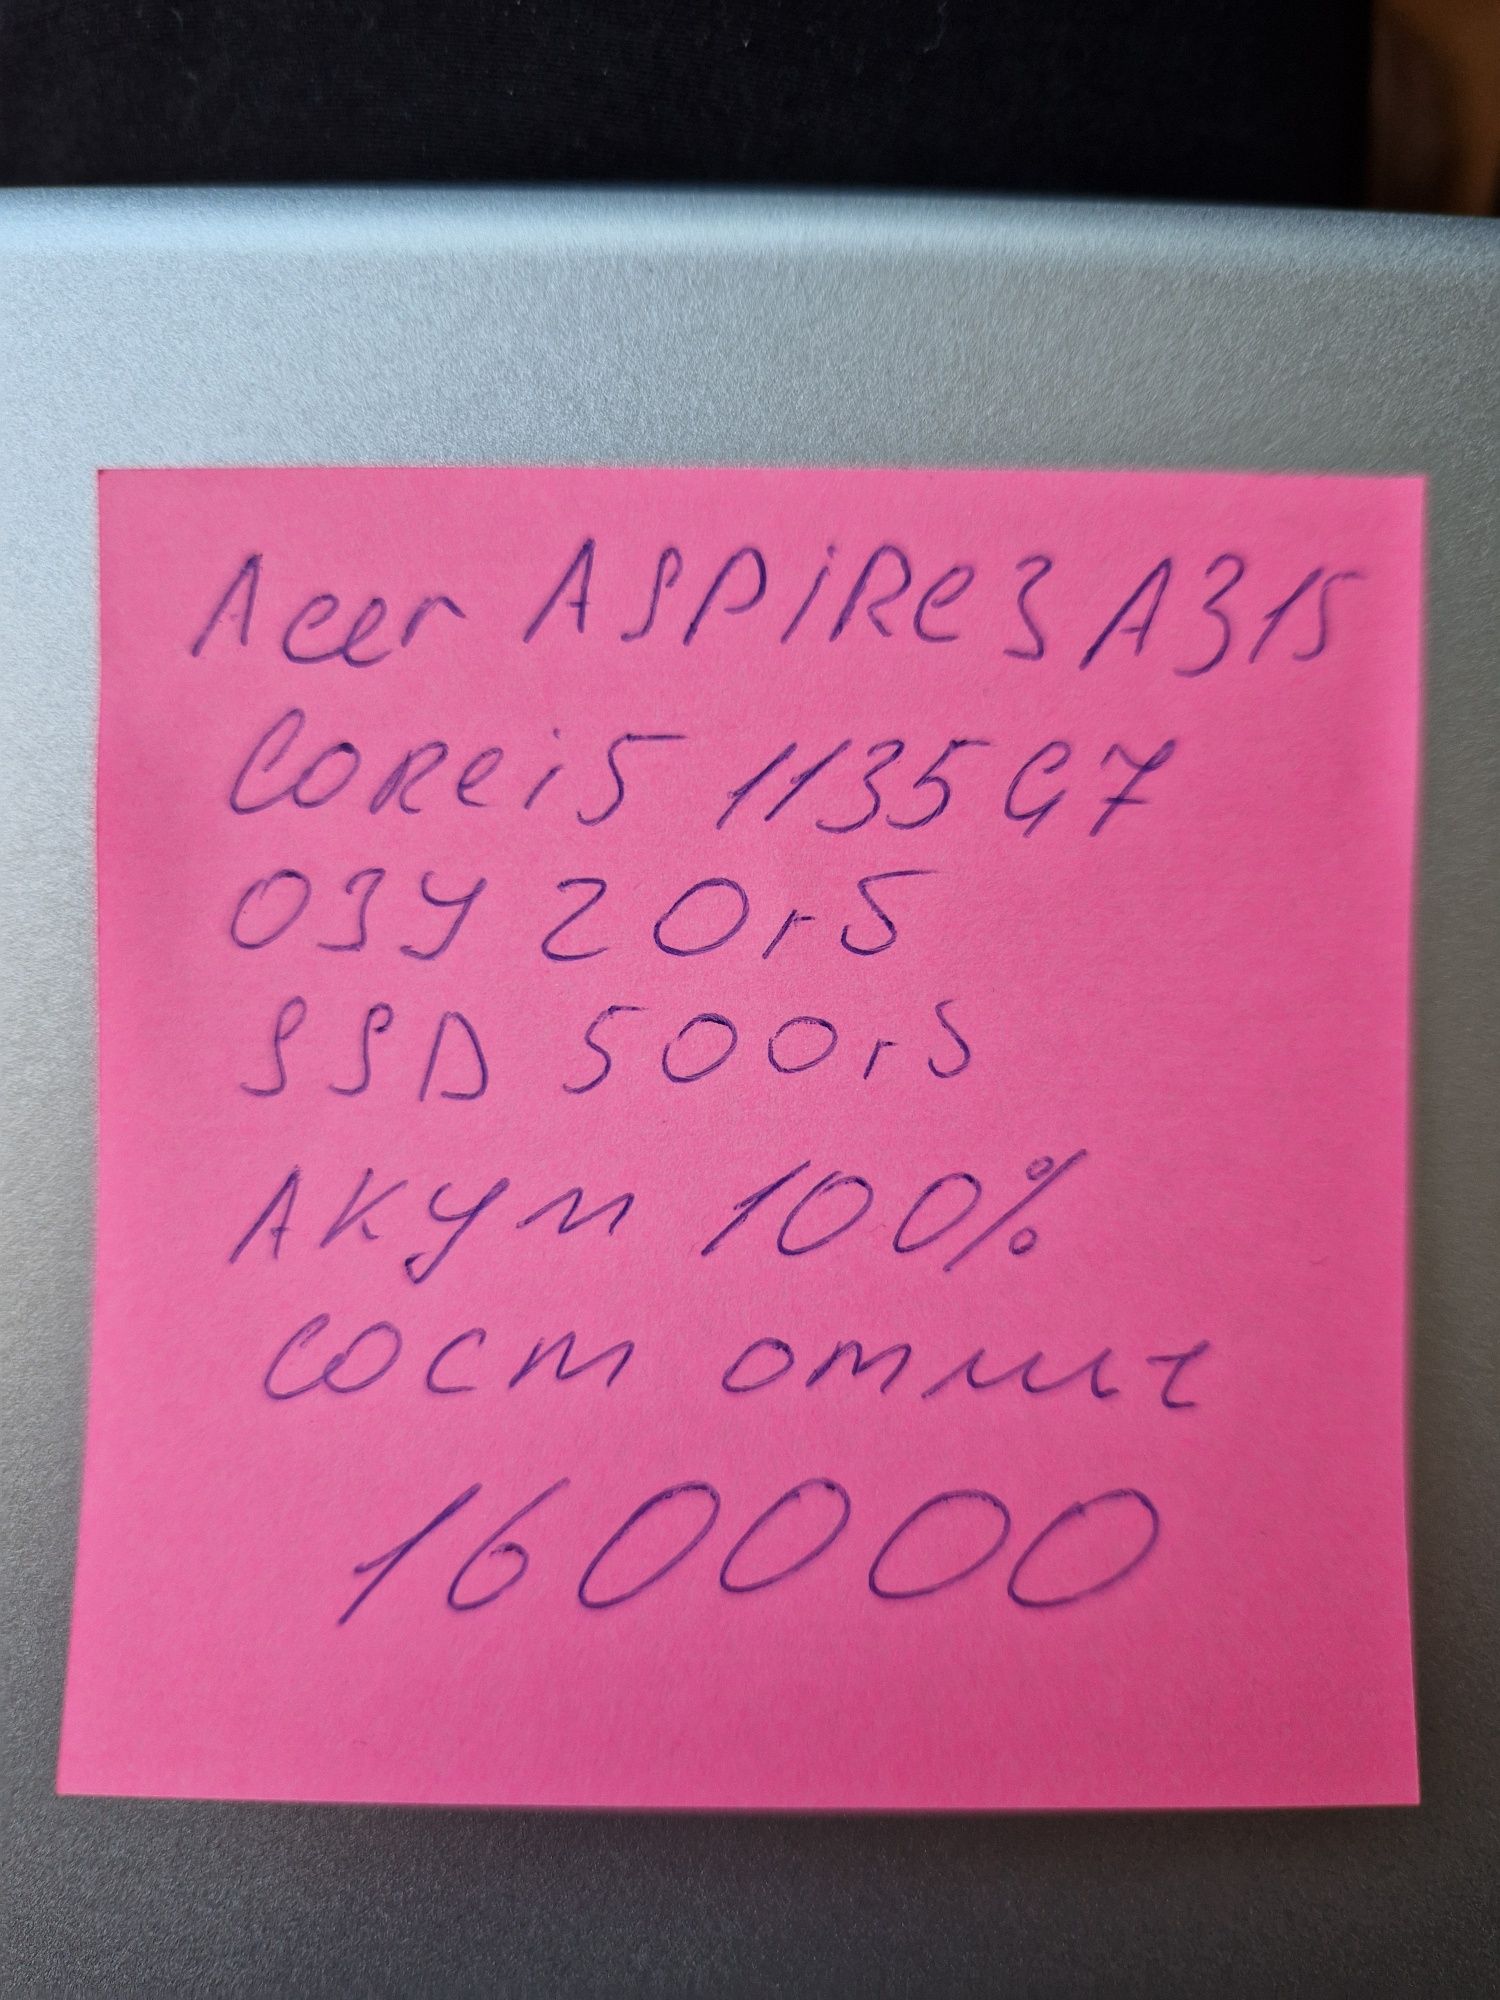 Acer ASPiRe 3 A315
CORe i5 1135G7
ОЗУ 20гб
SSD 500гб
Акум 100%
сост отлич
160000